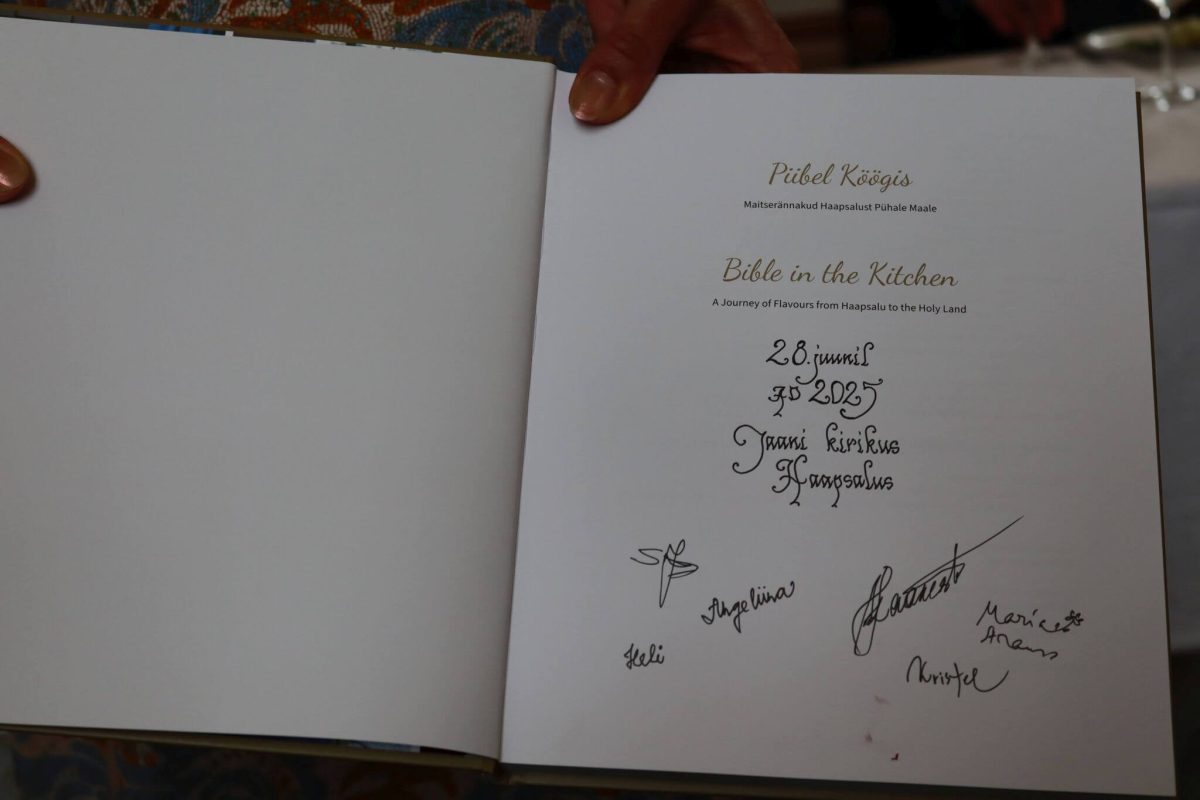 Piibel Köögis
Maitserännakud Haapsalust Pühale Maale
Bible in the Kitchen
A Journey of Flavours from Haapsalu to the Holy Land
28. juunil
AD 2025
Jaani kirikus
Haapsalus
Angeliina
Heli
Kristel